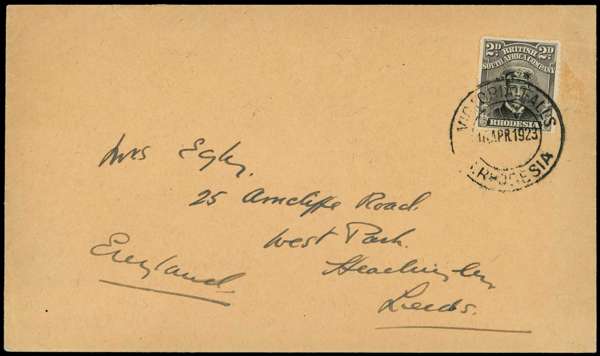 2D BRITISH 2D
SOUTH AFRICA COMPANY
RHODESIA
VICTORIA FALLS
APR 1923
RHODESIA
Mrs
25 Arncliffe Road.
West Park.
Headingley
Leeds.
England